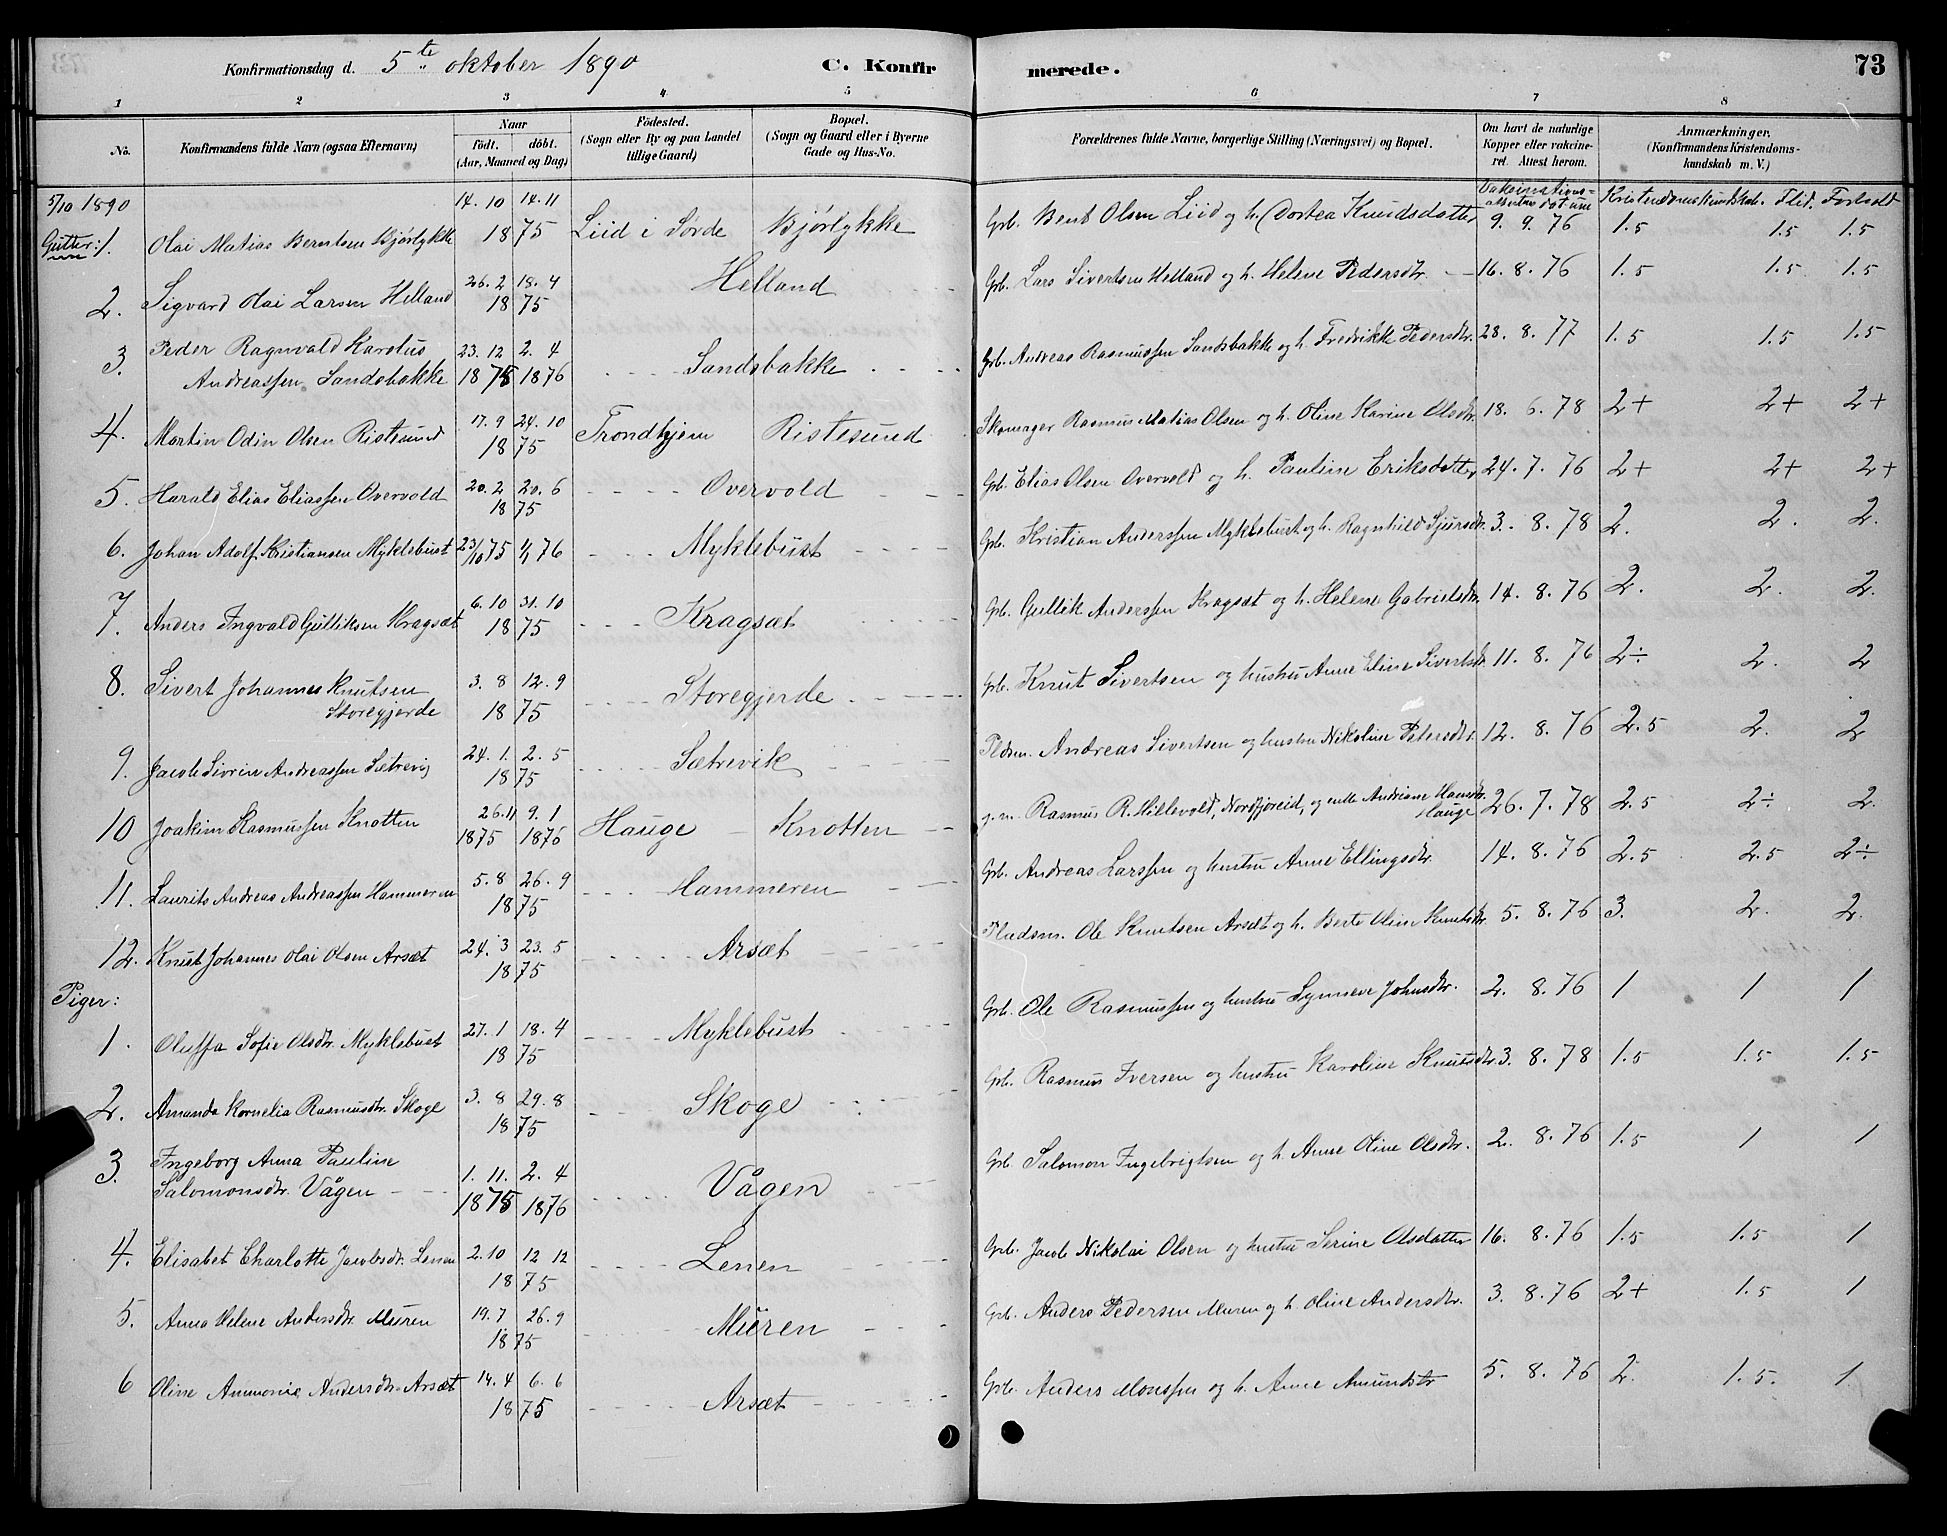 Konfirmationsdag d. 5te oktober 1890 C. Konfir merede. 73
1 2 3 4 5 6 7 8
No. Konfirmandens fulde Navn (ogsaa Efternavn) Naar födt. döbt. (Aar, Maaned og Dag) Födested. (Sogn eller By og paa Landet tillige Gaard) Bopæl. (Sogn og Gaard eller i Byerne Gade og Hus-No. Forældrenes fulde Navne, borgerlige Stilling (Næringsvei) og Bopæl. Om havt de naturlige Kopper eller vakcineret. Attest herom. Anmærkninger. (Konfirmandens Kristendomskundskab m. V.)
5/10 1890 Vaksinationsattestens datum Kristendomskundskab. Flid. Forhold
Gutter: 1. Olai Matias Berntsen Bjørlykke 14. 10 14. 11 1875 Liid i Sørde Bjørlykke Grb. Bent Olsen Liid og h. Dortea Knudsdatter 9. 9. 76 1.5 1.5 1.5
2. Sigvard Olai Larsen Helland 26. 2 18. 4 1875 Helland Grb. Lars Sivertsen Helland og h. Helene Pedersdtr. 16. 8. 76 1.5 1.5 1.5
3. Peder Ragnvald Karolus
Andreassen Sandsbakke 23. 12 1875 2. 4 1876 Sandsbakke Grb. Andreas Rasmussen Sandsbakke og h. Fredrikke Pedersdtr. 28. 8. 77 1.5 1.5 1.5
4. Martin Odin Olsen Ristesund 17. 9 24. 10 1875 Trondhjem Ristesund Skomager Rasmus Matias Olsen og h. Oline Karine Olsdtr. 18. 6. 78 2+ 2+ 2+
5. Harald Elias Eliassen Overvold 20. 2 20. 6 1875 Overvold Grb. Elias Olsen Overvold og h. Pauline Eriksdatter 24. 7. 76 2+ 2+ 2+
6. Johan Adolf Kristiansen Myklebust 23/10 75 1/1 76 Myklebust Grb. Kristian Anderssen Myklebust og h. Ragnhild Sjursdtr. 3. 8. 78 2. 2. 2.
7. Anders Ingvald Gulliksen Kragsæt 6. 10 31. 10 1875 Kragsæt Grb. Gullik Anderssen Kragsæt og h. Helene Gabrielsdtr. 14. 8. 76 2. 2. 2.
8. Sivert Johannes Knutsen
Storegjerde 3. 8 12. 9 1875 Storegjerde Grb. Knut Sivertsen og hustru Anne Eline Sivertsdtr. 11. 8. 76 2÷ 2. 2
9. Jacob Sivrin Andreassen Sætrevig 24. 1. 2. 5 1875 Sætrevik Pldsm. Andreas Sivertsen og hustru Nikoline Petersdtr. 12. 8. 76 2.5 2. 2
10 Joakim Rasmussen Knotten 26. 11 1875 9. 1 1876 Hauge Knotten g.m. Rasmus R. Hillevold, Nordfjoreid, og enke Andriane Hansdtr. Hauge 26. 7. 78 2.5 2÷ 2.
11. Laurits Andreas Andreassen Hammeren 5. 8 26. 9 1875 Hammeren Grb. Andreas Larssen og hustru Anne Ellingsdtr. 14. 8. 76 2.5 2.5 2÷
12. Knut Johannes Olai Olsen Arsæt 24. 3 23. 5 1875 Arsæt Pladsm. Ole Knutsen Arsæt og h. Berte Oline Knutsdtr. 5. 8. 76 3. 2. 2.
Piger:
1. Oluffa Sofie Olsdtr. Myklebust 27. 1 18. 4 1875 Myklebust Grb. Ole Rasmussen og hustru Synneve Johnsdtr. 2. 8. 76 1 1 1
2. Amanda Kornelia Rasmusdtr. Skoge 3. 8 29. 8 1875 Skoge Grb. Rasmus Iversen og hustru Karoline Knutsdtr. 3. 8. 78 1.5 1.5 1.5
3. Ingeborg Anna Pauline
Salomonsdtr. Vågen 1. 11. 1875 2. 4 1876 Vågen Grb. Salomon Ingebrigtsen og h. Anne Oline Olsdtr. 2. 8. 76 1.5 1 1
4. Elisabet Charlotte Jacobsdtr. Lenen 2. 10 12 12 1875 Lenen Grb. Jacob Nikolai Olsen og hustru Serine Olsdatter 16. 8. 76 1.5 1.5 1
5. Anna Helene Andersdtr. Muren 19. 7 26. 9 1875 Muren Grb. Anders Pedersen Muren og h. Oline Andersdtr. 3. 8. 76 2+ 1.5 1
6 Oline Ammonie Andersdtr. Arsæt 14. 4 6. 6 1875 Arsæt Grb. Anders Monssen og h. Anne Amundsdtr 5. 8. 76 2. 1.5. 1